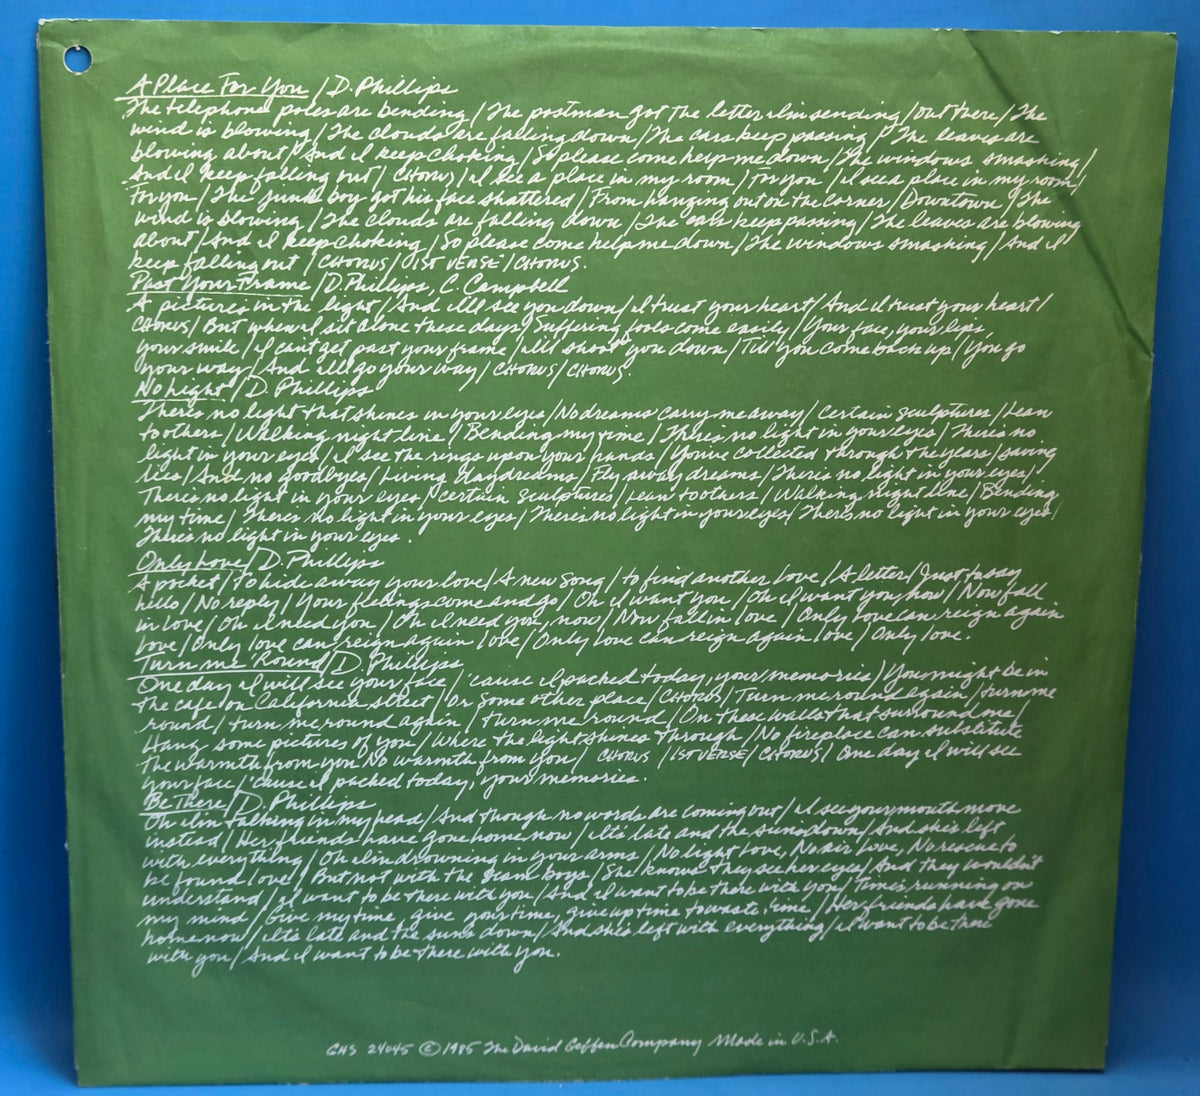 A Place For You / D. Phillips
The telephone poles are bending / The postman got the letter I'm sending / Out there / The
wind is blowing / The clouds are falling down / The cars keep passing / The leaves are
blowing about / And I keep choking / So please come help me down / The windows smashing /
And I keep falling out / CHORUS / I see a place in my room / For you / I see a place in my room /
For you / The junk boy got his face shattered / From hanging out on the corner / Downtown / The
wind is blowing / The clouds are falling down / The cars keep passing / The leaves are blowing
about / And I keep choking / So please come help me down / The windows smashing / And I
keep falling out / CHORUS / 1ST VERSE / CHORUS.
Past Your Frame / D. Phillips, C. Campbell
A picture's in the light / And I'll see you down / I trust your heart / And I trust your heart /
CHORUS / But when I sit alone these days / Suffering fools come easily / Your face, your lips,
your smile / I can't get past your frame / I'll shoot you down / Till you come back up / You go
your way / And I'll go your way / CHORUS / CHORUS
No Light / D. Phillips
There's no light that shines in your eyes / No dreams carry me away / Certain sculptures / Lean
to others / Walking night line / Bending my time / There's no light in your eyes / There's no
light in your eyes / I see the rings upon your hands / You've collected through the years / saving
lies / And no goodbyes / Living daydreams / Fly away dreams / There's no light in your eyes /
There's no light in your eyes / Certain sculptures / Lean to others / Walking night line / Bending
my time / There's no light in your eyes / There's no light in your eyes / There's no light in your eyes /
There's no light in your eyes.
Only Love / D. Phillips
A pocket / To hide away your love / A new song / to find another love / A letter / Just to say
hello / No reply / Your feelings come and go / Oh I want you / Oh I want you, now / Now fall
in love / Oh I need you / Oh I need you, now / Now fall in love / Only love can reign again
love / Only love can reign again love / Only love can reign again love / Only love.
Turn me 'Round / D. Phillips
One day I will see your face / 'cause I packed today, your memories / You might be in
the cafe on California street / Or some other place / CHORUS / Turn me round again / turn me
round / turn me round again / turn me round / On these walls that surround me /
Hang some pictures of you / Where the light shines through / No fireplace can substitute
the warmth from you No warmth from you / CHORUS / 1ST VERSE / CHORUS / One day I will see
your face / 'cause I packed today, your memories.
Be There / D. Phillips
Oh I'm talking in my head / And though no words are coming out / I see your mouth move
instead / Her friends have gone home now / It's late and the sun's down / And she's left
with everything / Oh I'm drowning in your arms / No light love, No air love, No rescue to
be found love / But not with the team boys / She knows they see her eyes / And they wouldn't
understand / I want to be there with you / And I want to be there with you / Time's running on
my mind / Give my time, give your time, give up time to waste time / Her friends have gone
home now / It's late and the sun's down / And she's left with everything / I want to be there
with you / And I want to be there with you.
GHS 24045 © 1985 The David Geffen Company Made in U.S.A.